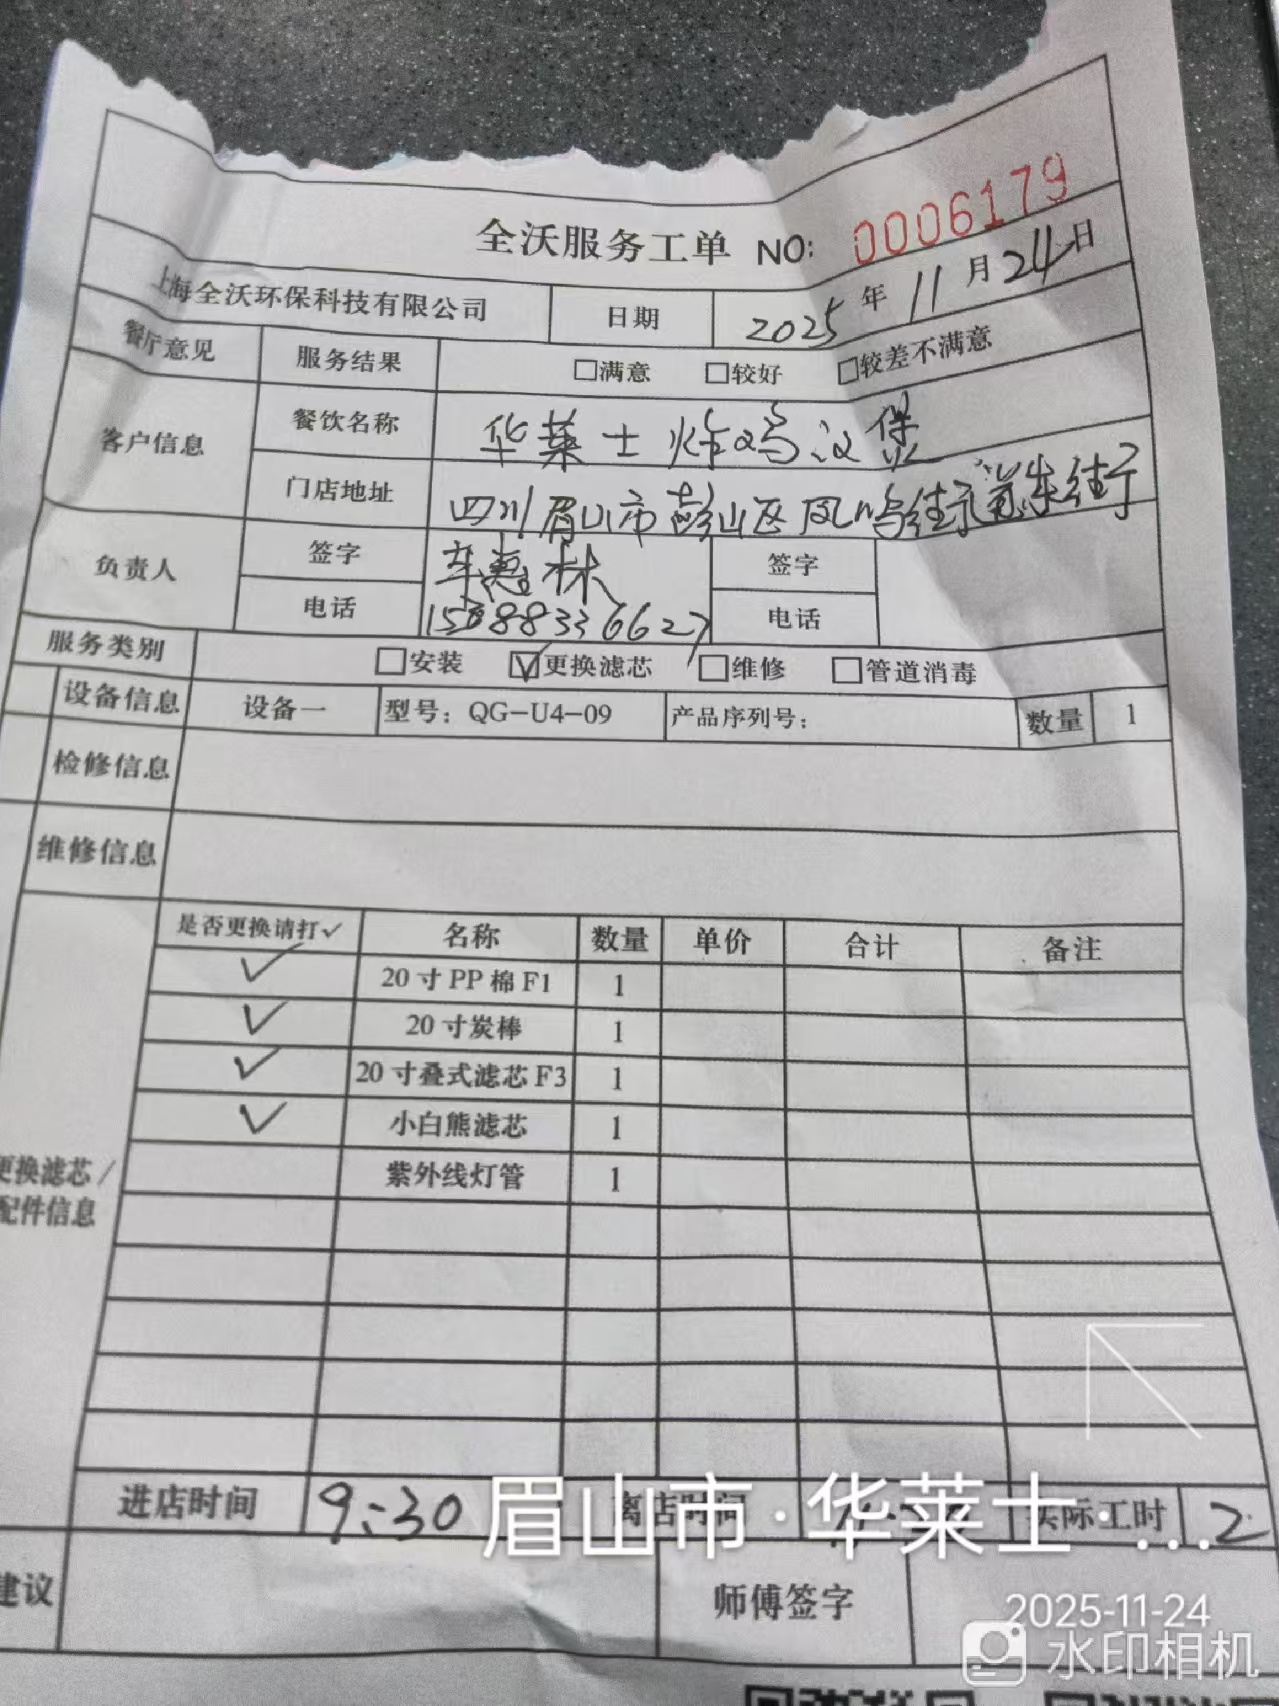 全沃服务工单 NO: 0006179
上海全沃环保科技有限公司 日期 2025年11月24日
餐厅意见 服务结果 □满意 □较好 □较差不满意
客户信息 餐饮名称 华莱士炸鸡汉堡
门店地址 四川眉山市彭山区凤鸣街
负责人 签字 惠林 签字
电话 电话
服务类别 □安装 ☑更换滤芯 □维修 □管道消毒
设备信息 设备一 型号：QG-U4-09 产品序列号： 数量 1
检修信息
维修信息
是否更换请打✓ 名称 数量 单价 合计 备注
✓ 20寸PP棉F1 1
✓ 20寸炭棒 1
✓ 20寸叠式滤芯F3 1
✓ 小白熊滤芯 1
紫外线灯管 1
更换滤芯/
配件信息
进店时间 9:30 离店时间 实际工时 2
眉山市·华莱士·...
建议 师傅签字
2025-11-24
水印相机